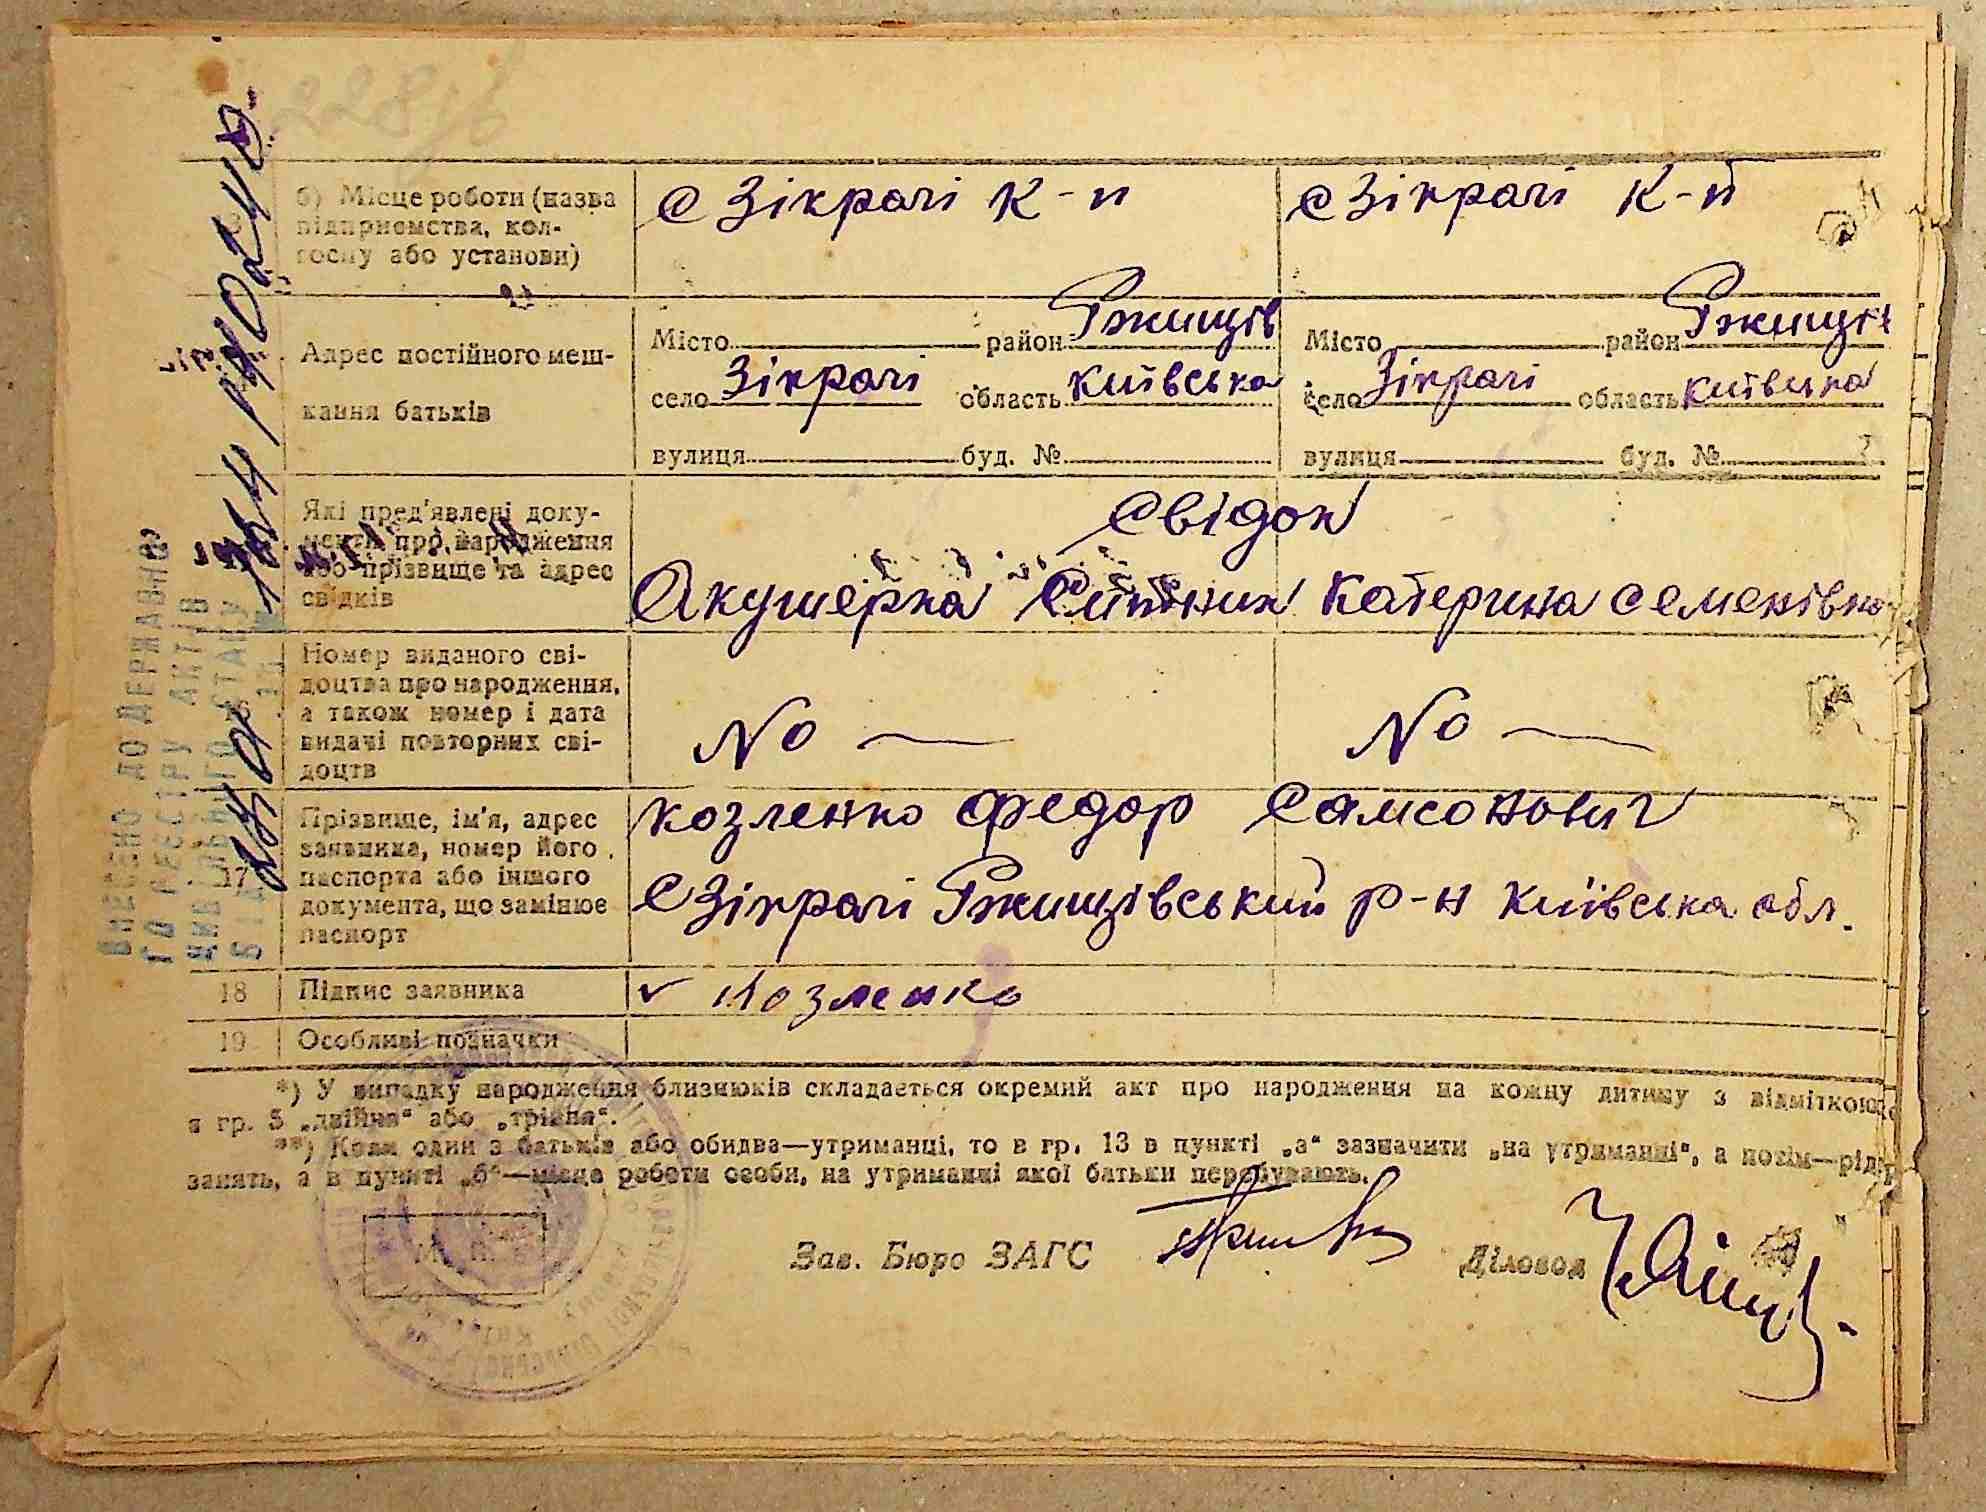 б) Місце роботи (назва
підприємства, кол-
госпу або установи)
с Зікрачі к-п
с Зікрачі к-п
Адрес постійного меш-
кання батьків
Місто район Ржищів
село Зікрачі область Київська
вулиця буд. №
Місто район Ржищів
село Зікрачі область Київська
вулиця буд. №
Які пред'явлені доку-
менти про народження
або прізвище та адрес
свідків
Свідок
Акушерка Катерина Семенівна
16
Номер виданого сві-
доцтва про народження,
а також номер і дата
видачі повторних сві-
доцтв
№ —
№ —
17
Прізвище, ім'я, адрес
заявника, номер його
паспорта або іншого
документа, що замінює
паспорт
Козленко Федор Самсонович
с Зікрачі Ржищівський р-н Київська обл.
18 Підпис заявника
✓ Козленко
19 Особливі позначки
*) У випадку народження близнюків складається окремий акт про народження на кожну дитину з відміткою
в гр. 5 „двійня“ або „трійня“.
**) Коли один з батьків або обидва—утриманці, то в гр. 13 в пункті „а“ зазначити „на утриманні“, а потім—рід
занять, а в пункті „б“—місце роботи особи, на утриманні якої батьки перебувають.
М. П.
Зав. Бюро ЗАГС
Діловод
ВНЕСЕНО ДО ДЕРЖАВНО
ГО РЕЄСТРУ АКТІВ
ЦИВІЛЬНОГО СТАНУ